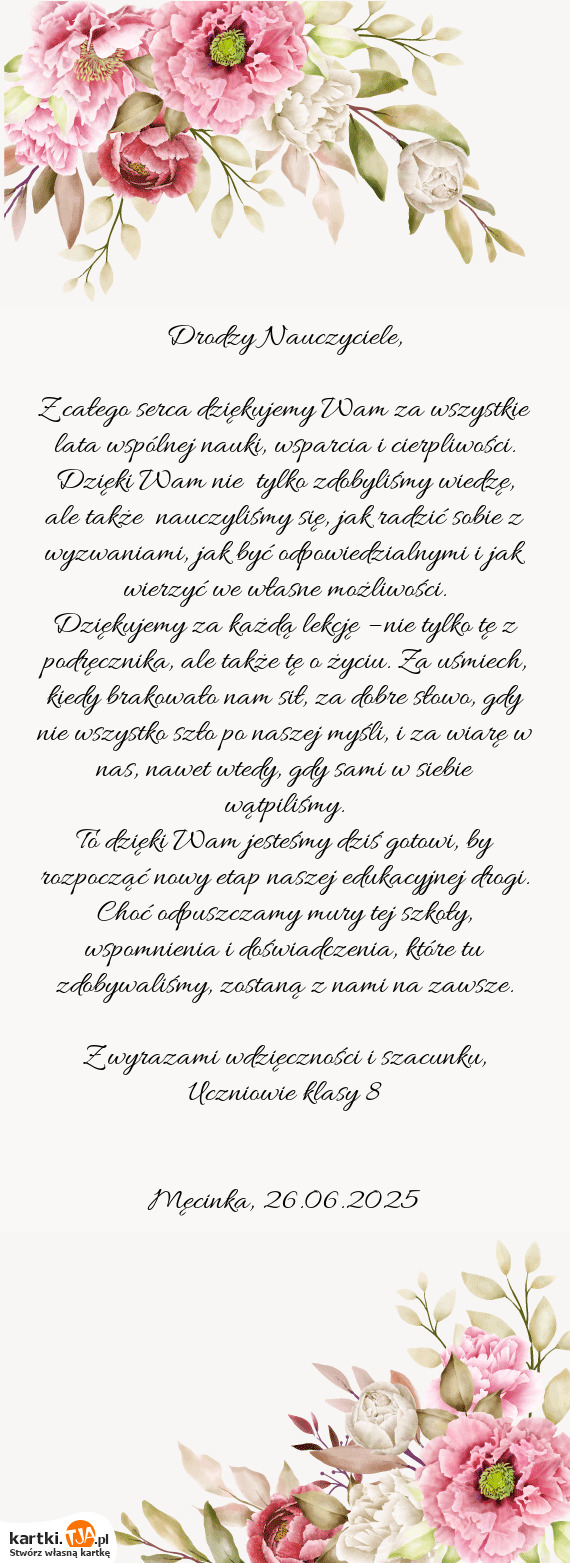 Drodzy Nauczyciele,
Z całego serca dziękujemy Wam za wszystkie
lata wspólnej nauki, wsparcia i cierpliwości.
Dzięki Wam nie  tylko zdobyliśmy wiedzę,
ale także  nauczyliśmy się, jak radzić sobie z
wyzwaniami, jak być odpowiedzialnymi i jak
wierzyć we własne możliwości.
Dziękujemy za każdą lekcję – nie tylko tę z
podręcznika, ale także tę o życiu. Za uśmiech,
kiedy brakowało nam sił, za dobre słowo, gdy
nie wszystko szło po naszej myśli, i za wiarę w
nas, nawet wtedy, gdy sami w siebie
wątpiliśmy.
To dzięki Wam jesteśmy dziś gotowi, by
rozpocząć nowy etap naszej edukacyjnej drogi.
Choć odpuszczamy mury tej szkoły,
wspomnienia i doświadczenia, które tu
zdobywaliśmy, zostaną z nami na zawsze.
Z wyrazami wdzięczności i szacunku,
Uczniowie klasy 8
Męcinka, 26.06.2025
kartki.TJA.pl
Stwórz własną kartkę